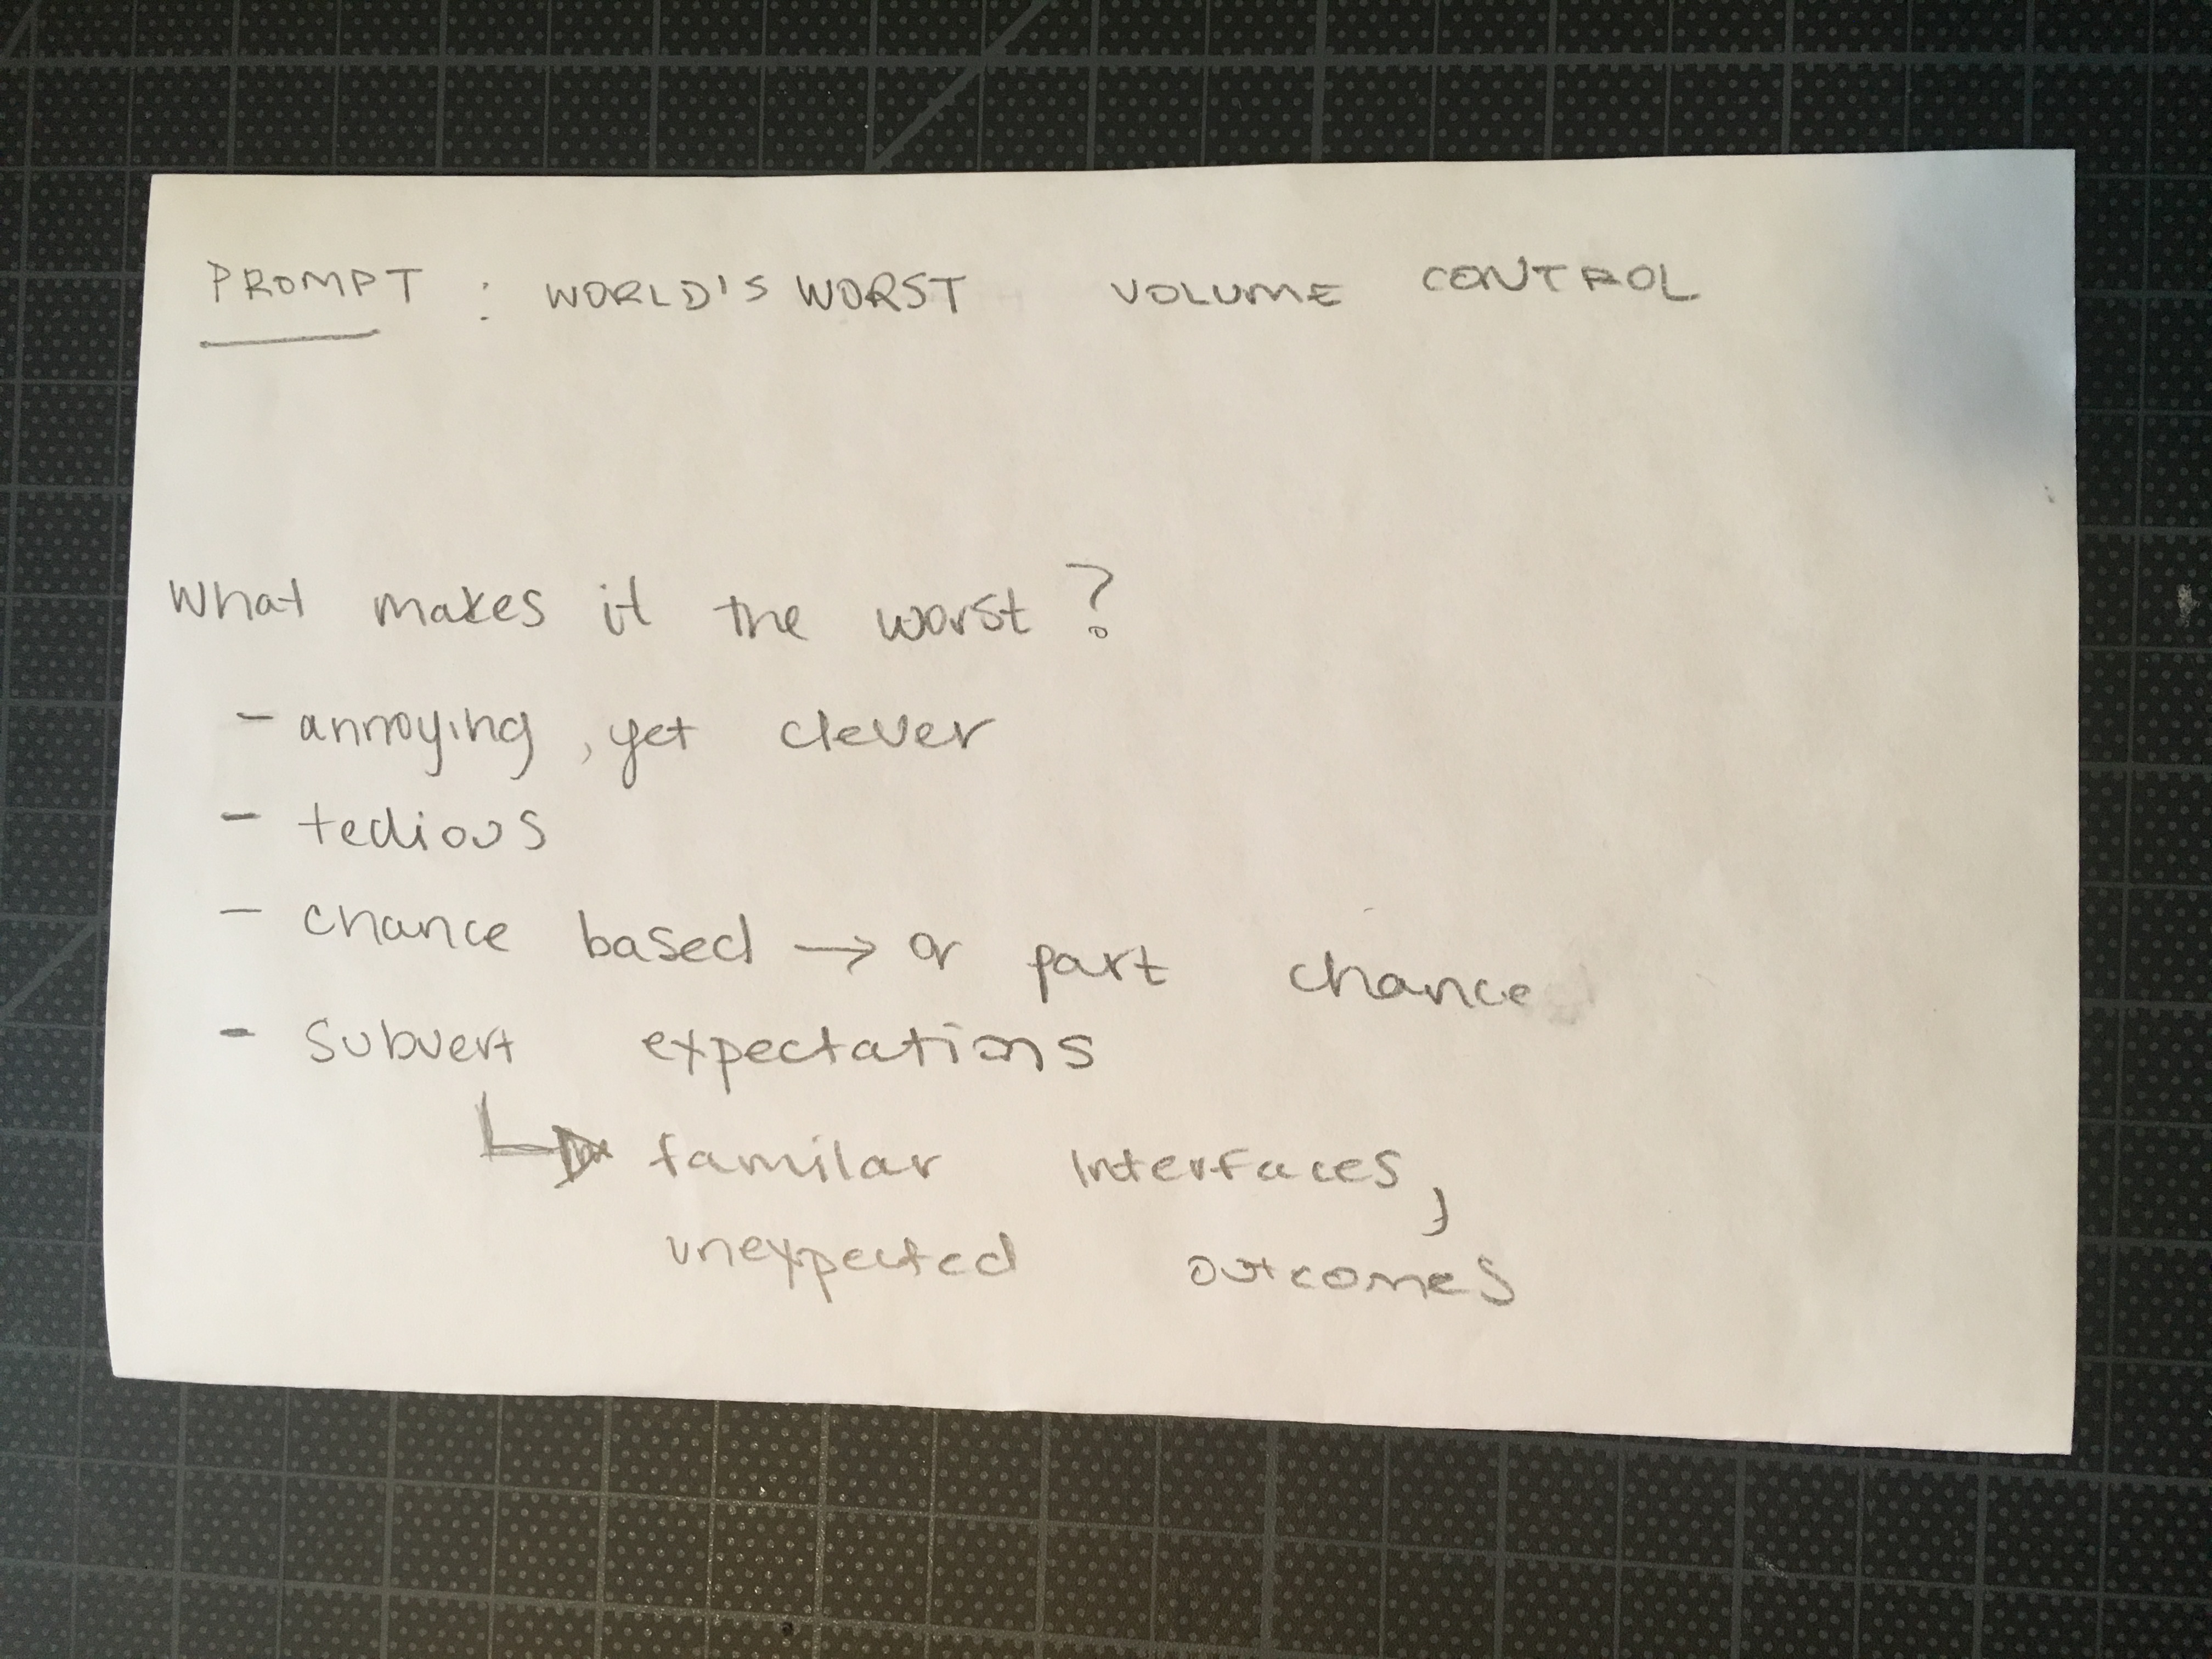 PROMPT : WORLD'S WORST VOLUME CONTROL
What makes it the worst?
- annoying, yet clever
- tedious
- chance based → or part chance
- subvert expectations
↳ familar interfaces,
unexpected outcomes